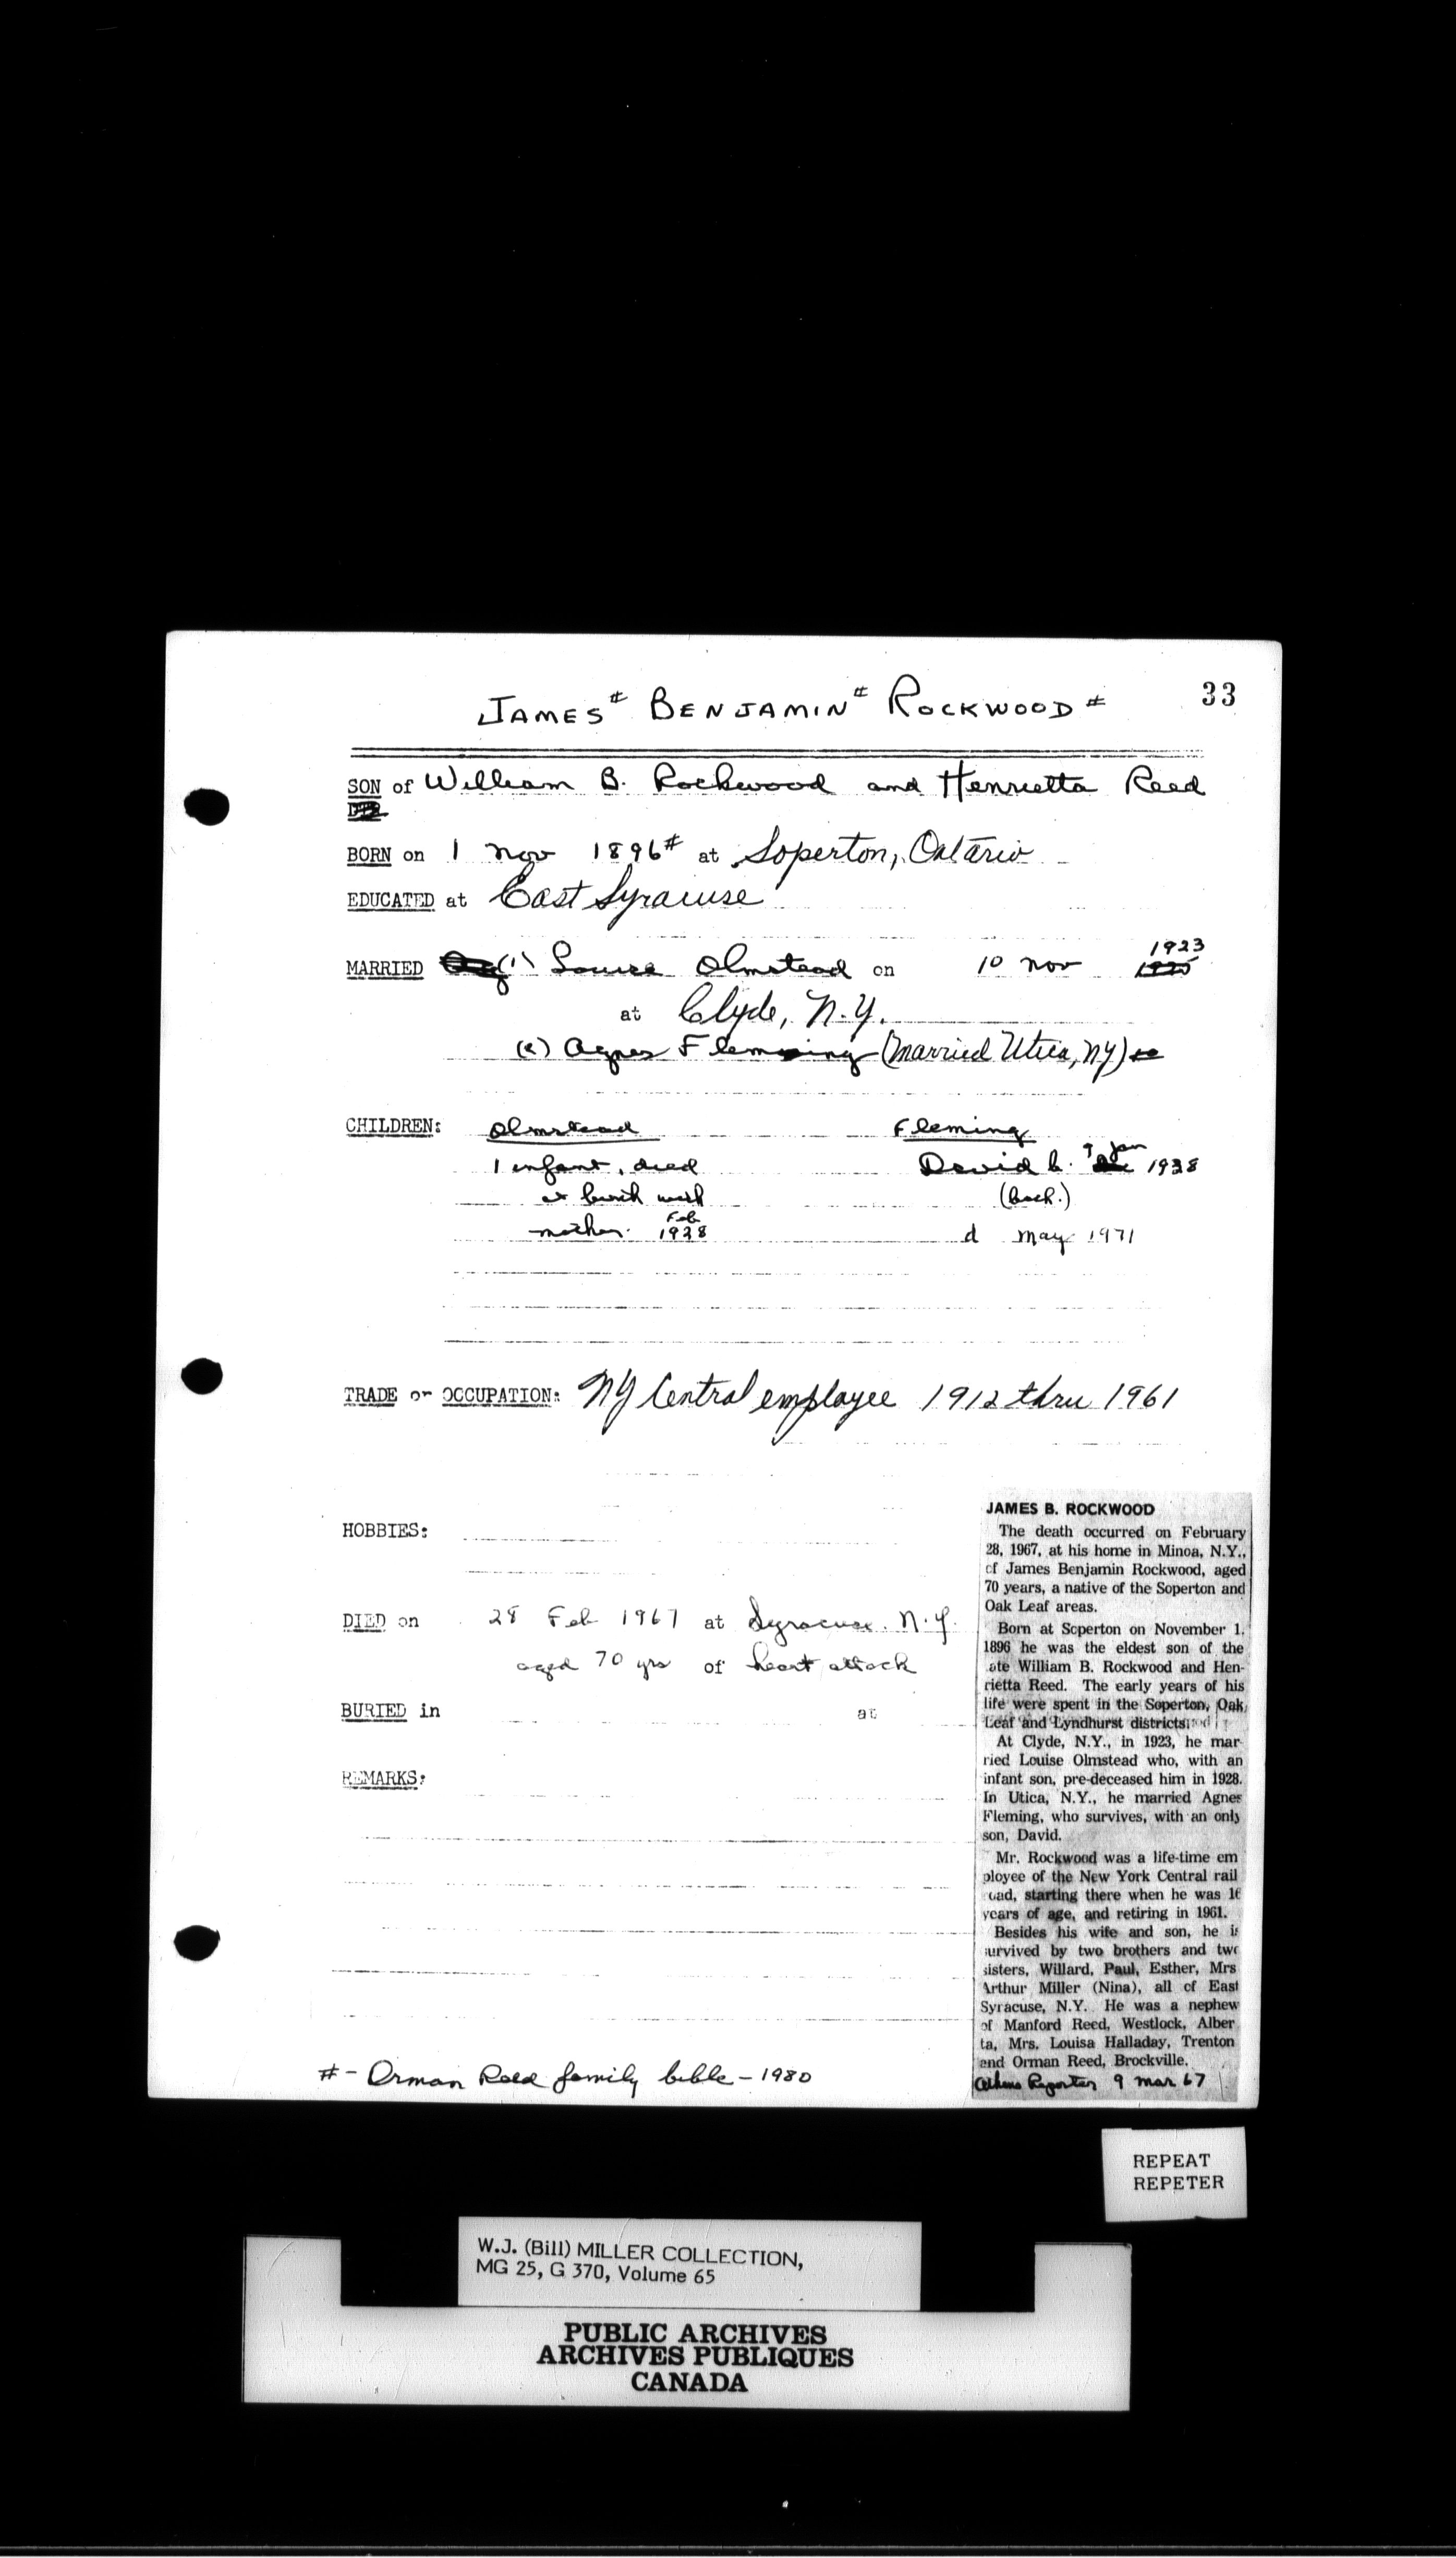 33
JAMES# BENJAMIN# ROCKWOOD#
SON of William B. Rockwood and Henrietta Reed
BORN on 1 Nov 1896# at Soperton, Ontario
EDUCATED at East Syracuse
1923
MARRIED (1) Louise Olmstead on 10 Nov
at Clyde, N.Y.
(2) Agnes Fleming (married Utica, NY)
CHILDREN: Olmstead Fleming
1 infant, died David 9 Jan 1938
at birth with (bach.)
mother. Feb 1928 d May 1971
TRADE or OCCUPATION: NY Central employee 1912 thru 1961
HOBBIES:
DIED on 28 Feb 1967 at Syracuse. N.Y.
aged 70 yrs of heart attack
BURIED in at
REMARKS:
#- Orman Reed family bible - 1980
JAMES B. ROCKWOOD
The death occurred on February
28, 1967, at his home in Minoa, N.Y.,
of James Benjamin Rockwood, aged
70 years, a native of the Soperton and
Oak Leaf areas.
Born at Soperton on November 1,
1896 he was the eldest son of the
ate William B. Rockwood and Hen-
rietta Reed. The early years of his
life were spent in the Soperton, Oak
Leaf and Lyndhurst districts.
At Clyde, N.Y., in 1923, he mar-
ried Louise Olmstead who, with an
infant son, pre-deceased him in 1928.
In Utica, N.Y., he married Agnes
Fleming, who survives, with an only
son, David.
Mr. Rockwood was a life-time em
ployee of the New York Central rail
oad, starting there when he was 16
years of age, and retiring in 1961.
Besides his wife and son, he is
survived by two brothers and two
sisters, Willard, Paul, Esther, Mrs
Arthur Miller (Nina), all of East
Syracuse, N.Y. He was a nephew
of Manford Reed, Westlock, Alber
ta, Mrs. Louisa Halladay, Trenton
and Orman Reed, Brockville.
Athens Reporter 9 Mar 67
REPEAT
REPETER
W.J. (Bill) MILLER COLLECTION,
MG 25, G 370, Volume 65
PUBLIC ARCHIVES
ARCHIVES PUBLIQUES
CANADA